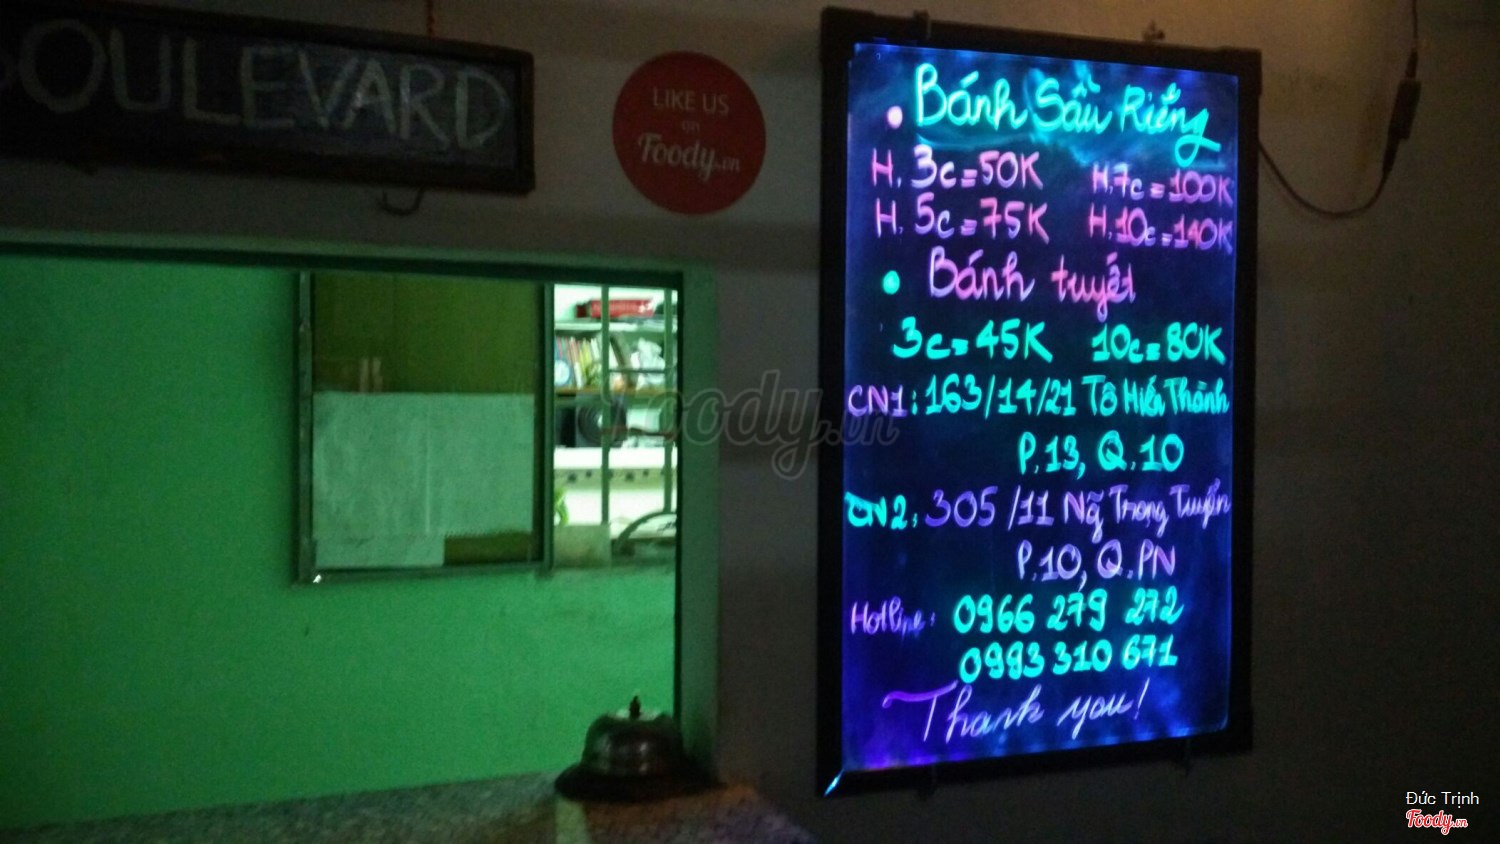 OULEVARD
LIKE US
on
Foody.vn
Bánh Sầu Riêng
H. 3c = 50K H. 7c = 100K
H. 5c = 75K H. 10c = 140K
Bánh tuyết
3c = 45K 10c = 80K
CN1: 163/14/21 Tô Hiến Thành
P.13, Q.10
CN2: 305/11 Ng̃ Trọng Tuyển
P.10, Q.PN
Hotline: 0966 279 272
0993 310 671
Thank you!
Foody.vn
Đức Trịnh
Foody.vn